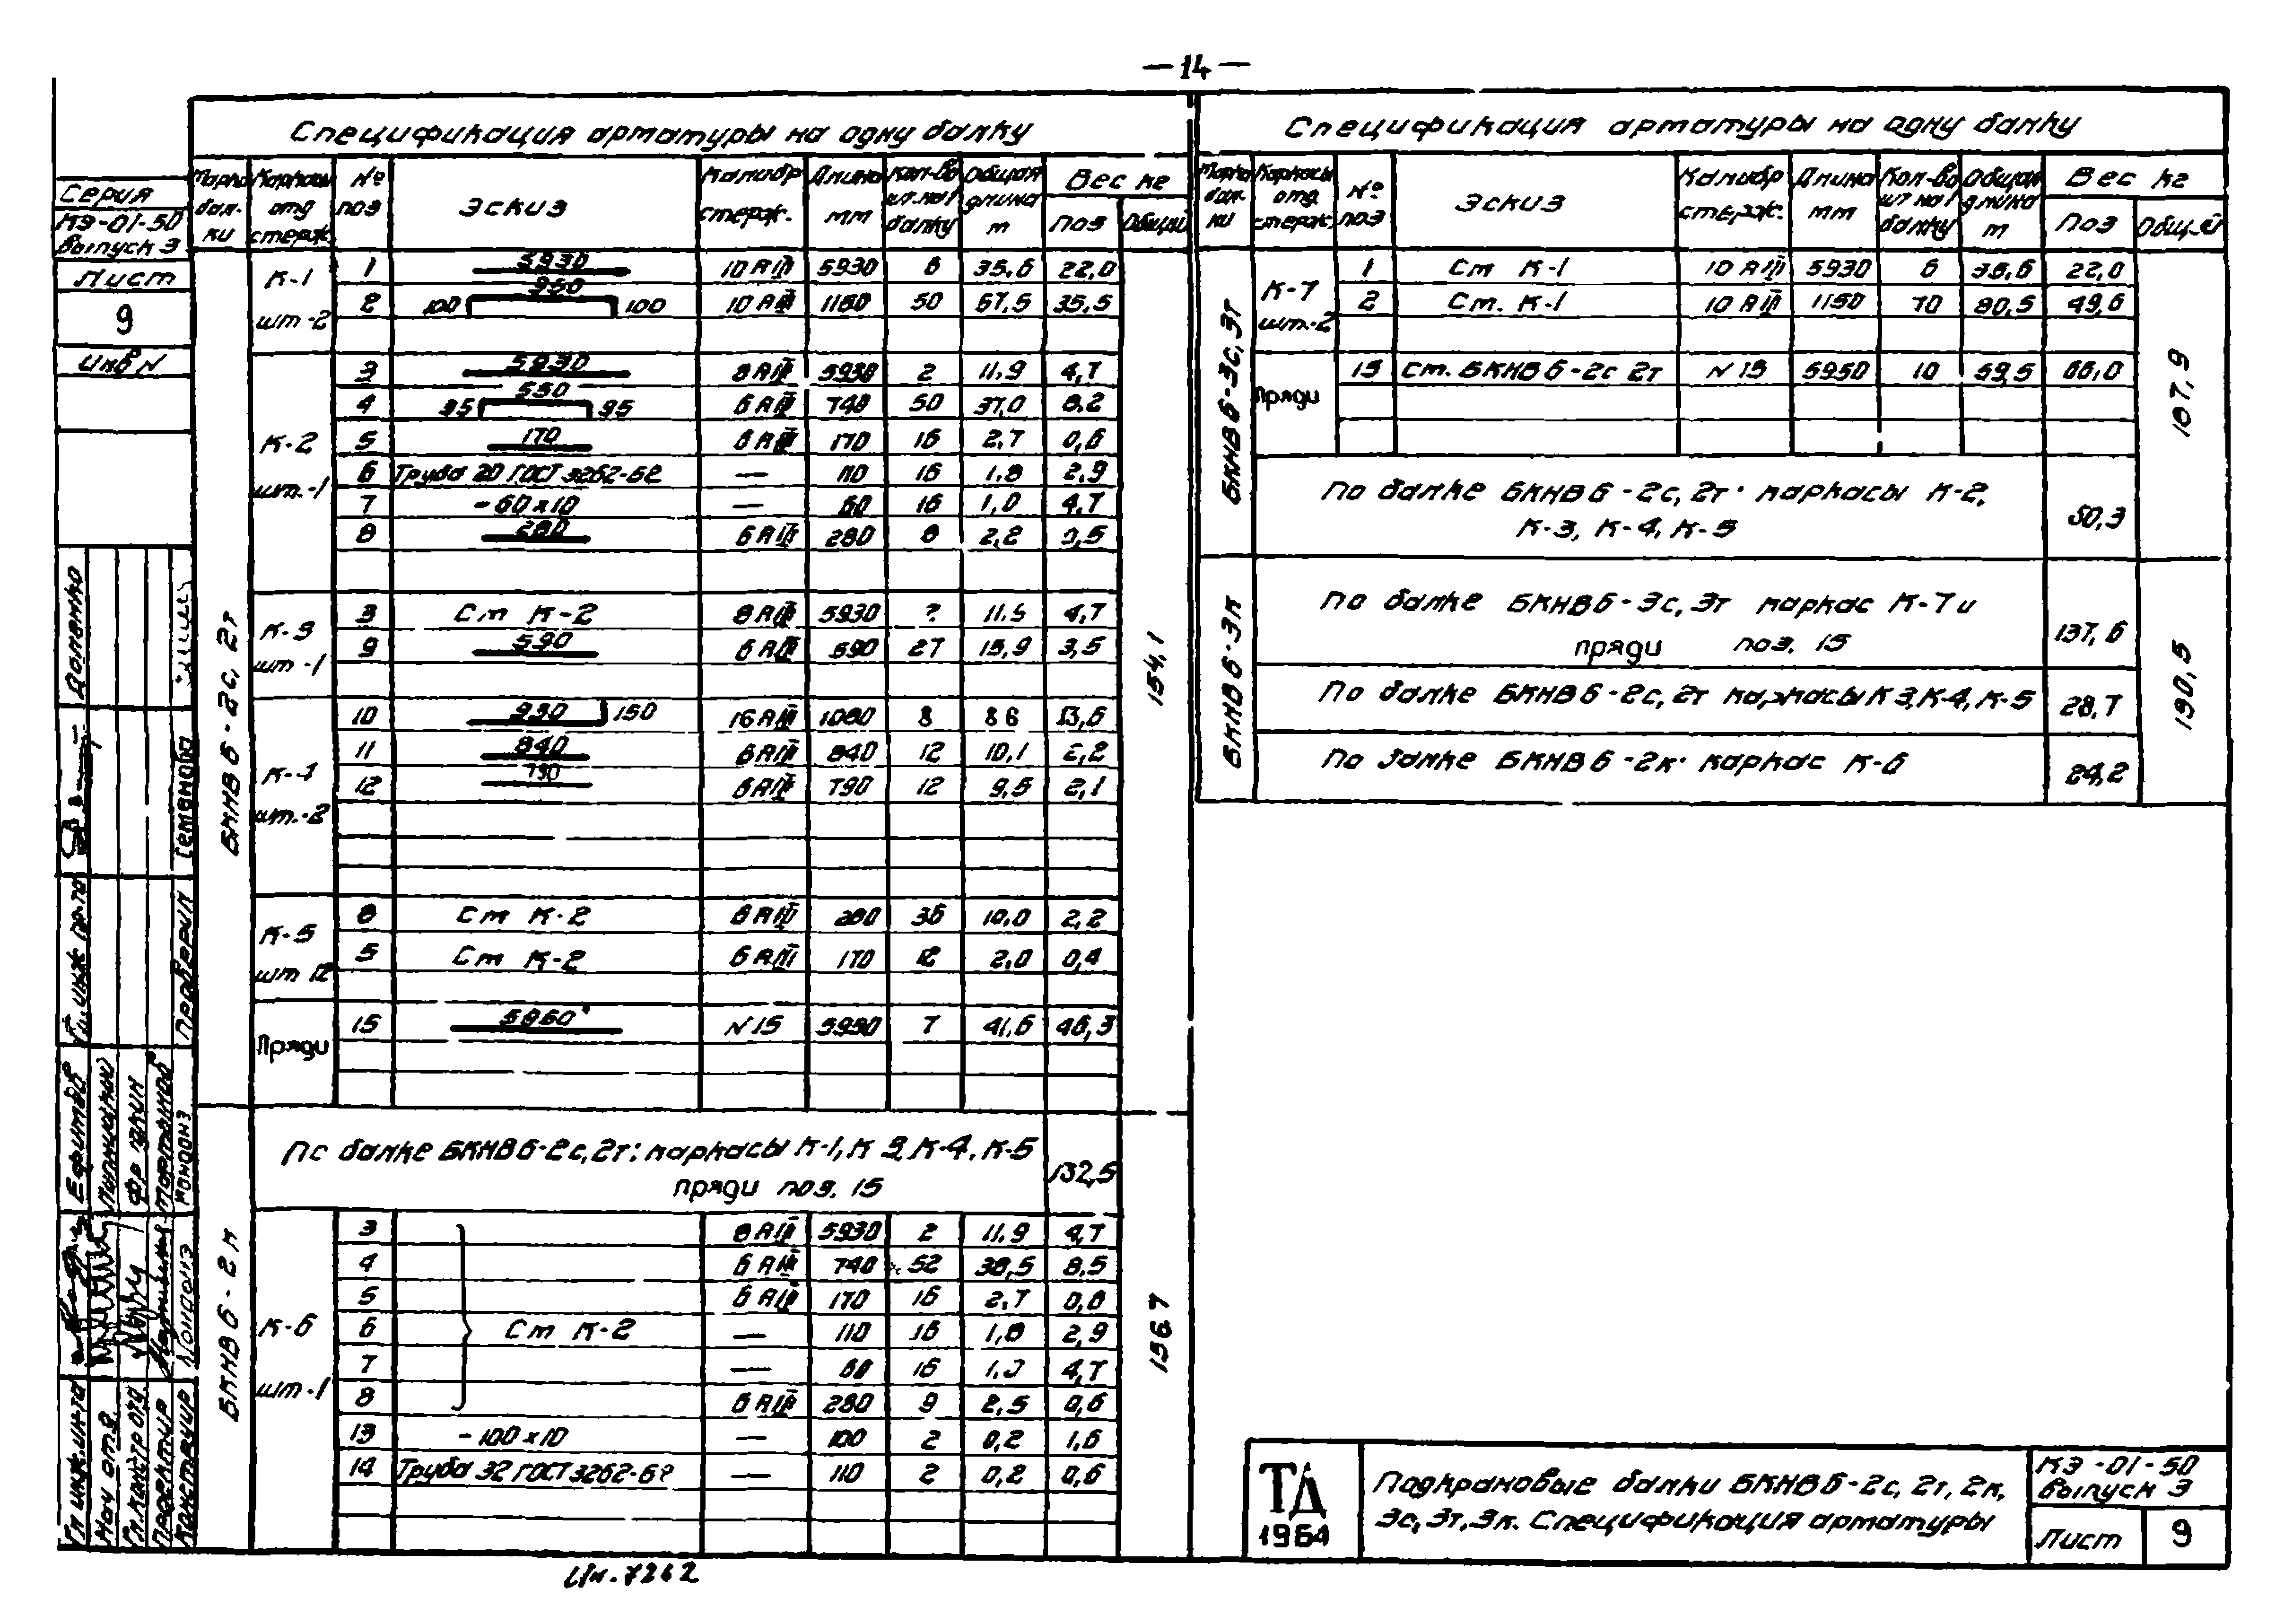 — 14 —
Спецификация арматуры на одну балку
Марка балки | Каркасы отд стерж. | № поз | Эскиз | Калибр стерж. | Длина мм | Кол-во шт. на 1 балку | Общая длина м | Вес кг | Поз | Общий
БКНВ6-2с, 2т
К-1 шт-2
1 | 5930 | 10 АIII | 5930 | 6 | 35,6 | 22,0
2 | 100 950 100 | 10 АIII | 1150 | 50 | 57,5 | 35,5
К-2 шт.-1
3 | 5930 | 8 АIII | 5930 | 2 | 11,9 | 4,7
4 | 95 550 95 | 6 АIII | 740 | 50 | 37,0 | 8,2
5 | 170 | 6 АIII | 170 | 16 | 2,7 | 0,6
6 | Труба 20 ГОСТ 3262-62 | — | 110 | 16 | 1,8 | 2,9
7 | -60х10 | — | 60 | 16 | 1,0 | 4,7
8 | 280 | 6 АIII | 280 | 8 | 2,2 | 0,5
К-3 шт-1
3 | Ст К-2 | 8 АIII | 5930 | 2 | 11,9 | 4,7
9 | 590 | 6 АIII | 590 | 27 | 15,9 | 3,5
К-4 шт.-2
10 | 930 150 | 16 АIII | 1080 | 8 | 8 6 | 13,6
11 | 840 | 6 АIII | 840 | 12 | 10,1 | 2,2
12 | 790 | 6 АIII | 790 | 12 | 9,5 | 2,1
К-5 шт 12
8 | Ст К-2 | 6 АIII | 280 | 36 | 10,0 | 2,2
5 | Ст К-2 | 6 АIII | 170 | 12 | 2,0 | 0,4
Пряди
15 | 5950 | N 15 | 5950 | 7 | 41,6 | 46,3
154,1
БКНВ6-2к
По балке БКНВ6-2с, 2т: каркасы К-1, К 3, К-4, К-5
пряди поз. 15 | 132,5
К-6 шт-1
3 | 8 АIII | 5930 | 2 | 11,9 | 4,7
4 | 6 АIII | 740 | 52 | 38,5 | 8,5
5 | 6 АIII | 170 | 16 | 2,7 | 0,6
6 | Ст К-2 | — | 110 | 16 | 1,8 | 2,9
7 | — | 60 | 16 | 1,0 | 4,7
8 | 6 АIII | 280 | 9 | 2,5 | 0,6
13 | -100х10 | — | 100 | 2 | 0,2 | 1,6
14 | Труба 32 ГОСТ 3262-62 | — | 110 | 2 | 0,2 | 0,6
156,7
Спецификация арматуры на одну балку
Марка балки | Каркасы отд. стерж. | № поз | Эскиз | Калибр стерж. | Длина мм | Кол-во шт на 1 балку | Общая длина м | Вес кг | Поз | Общий
БКНВ6-3с, 3т
К-7 шт.-2
1 | Ст К-1 | 10 АIII | 5930 | 6 | 35,6 | 22,0
2 | Ст. К-1 | 10 АIII | 1150 | 70 | 80,5 | 49,6
Пряди
15 | Ст. БКНВ6-2с 2т | N 15 | 5950 | 10 | 59,5 | 66,0
По балке БКНВ6-2с, 2т: каркасы К-2,
К-3, К-4, К-5 | 50,3
187,9
БКНВ6-3к
По балке БКНВ6-3с, 3т каркас К-7 и
пряди поз. 15 | 137,6
По балке БКНВ6-2с, 2т каркасы К 3, К-4, К-5 | 28,7
По балке БКНВ6-2к: каркас К-6 | 24,2
190,5
ТД
1964
Подкрановые балки БКНВ6-2с, 2т, 2к,
3с, 3т, 3к. Спецификация арматуры
КЭ-01-50
выпуск 3
Лист 9
Серия
КЭ-01-50
Выпуск 3
Лист
9
Инв N
Гл инж. ин-та
Нач отд.
Гл. констр отд.
Проектир
Конструир
Гл. инж пр-та
Проверил
Семенова